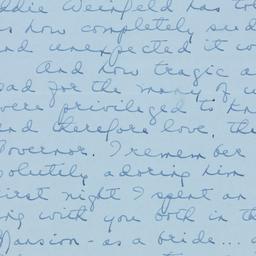 ddie Weinfeld has tol
s how completely sud
nd unexpected it wo
And how tragic a
sad for the many of u
were privileged to kn
nd therefore love, the
Governor. I remember
solutely adoring him
first night I spent an
ing with you both in th
Mansion - as a bride... a